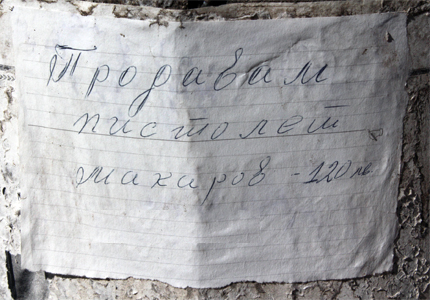 Продавам
пистолет
макаров - 120 лв